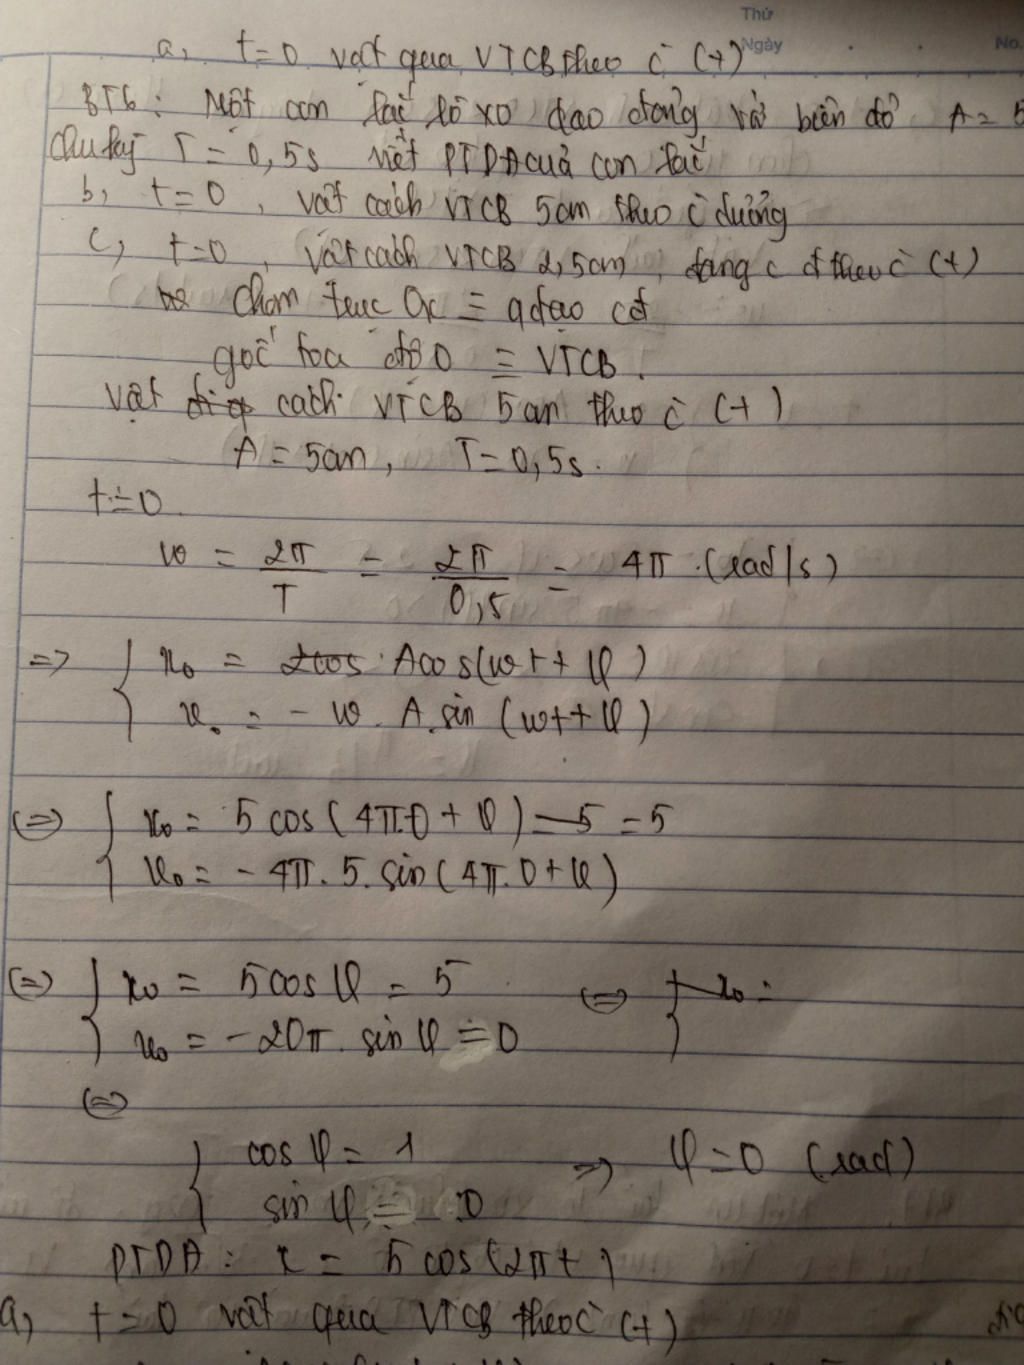 Thứ
Ngày
No.
a, t=0 vật qua VTCB theo c (+)
BT6: Một con lắc lò xo dao động và biên độ A = 5
Chu kỳ T = 0,5s viết PTDĐ của con lắc
b, t=0, vật cách VTCB 5cm theo c dương
c, t=0, vật cách VTCB 2,5cm, đang c đ theo c (+)
Chọn trục Ox ≡ qđạo cđ
gốc toạ độ O ≡ VTCB.
Vật cách VTCB 5cm theo c (+)
A = 5cm, T = 0,5s.
t=0
ω = 2π/T = 2π/0,5 = 4π (rad/s)
=> { x₀ = A cos(ωt + φ)
v₀ = - ω. A. sin (ωt + φ)
(=) { x₀ = 5 cos (4π.0 + φ) = 5
v₀ = - 4π. 5. sin (4π. 0 + φ)
(=) { x₀ = 5 cos φ = 5 (=) {
v₀ = -20π. sin φ = 0
(=)
{ cos φ = 1 => φ = 0 (rad)
sin φ = 0
PTDĐ: x = 5 cos (2πt)
a, t=0 vật qua VTCB theo c (+)